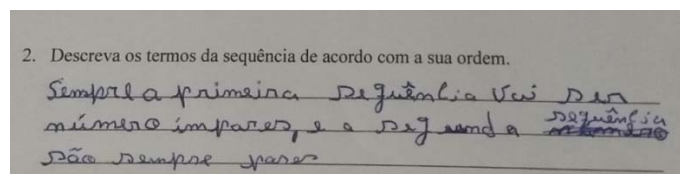 2. Descreva os termos da sequência de acordo com a sua ordem.
Sempre a primeira sequência vai ser
número impares, e a segunda sequência
são sempre pares